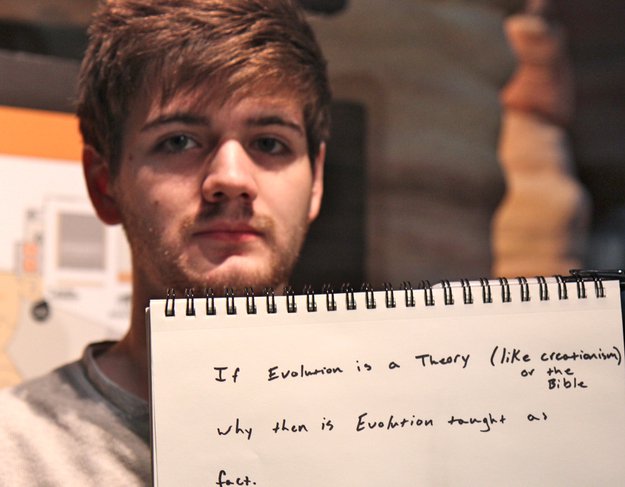 If Evolution is a Theory (like creationism)
or the
Bible
why then is Evolution taught as
fact.